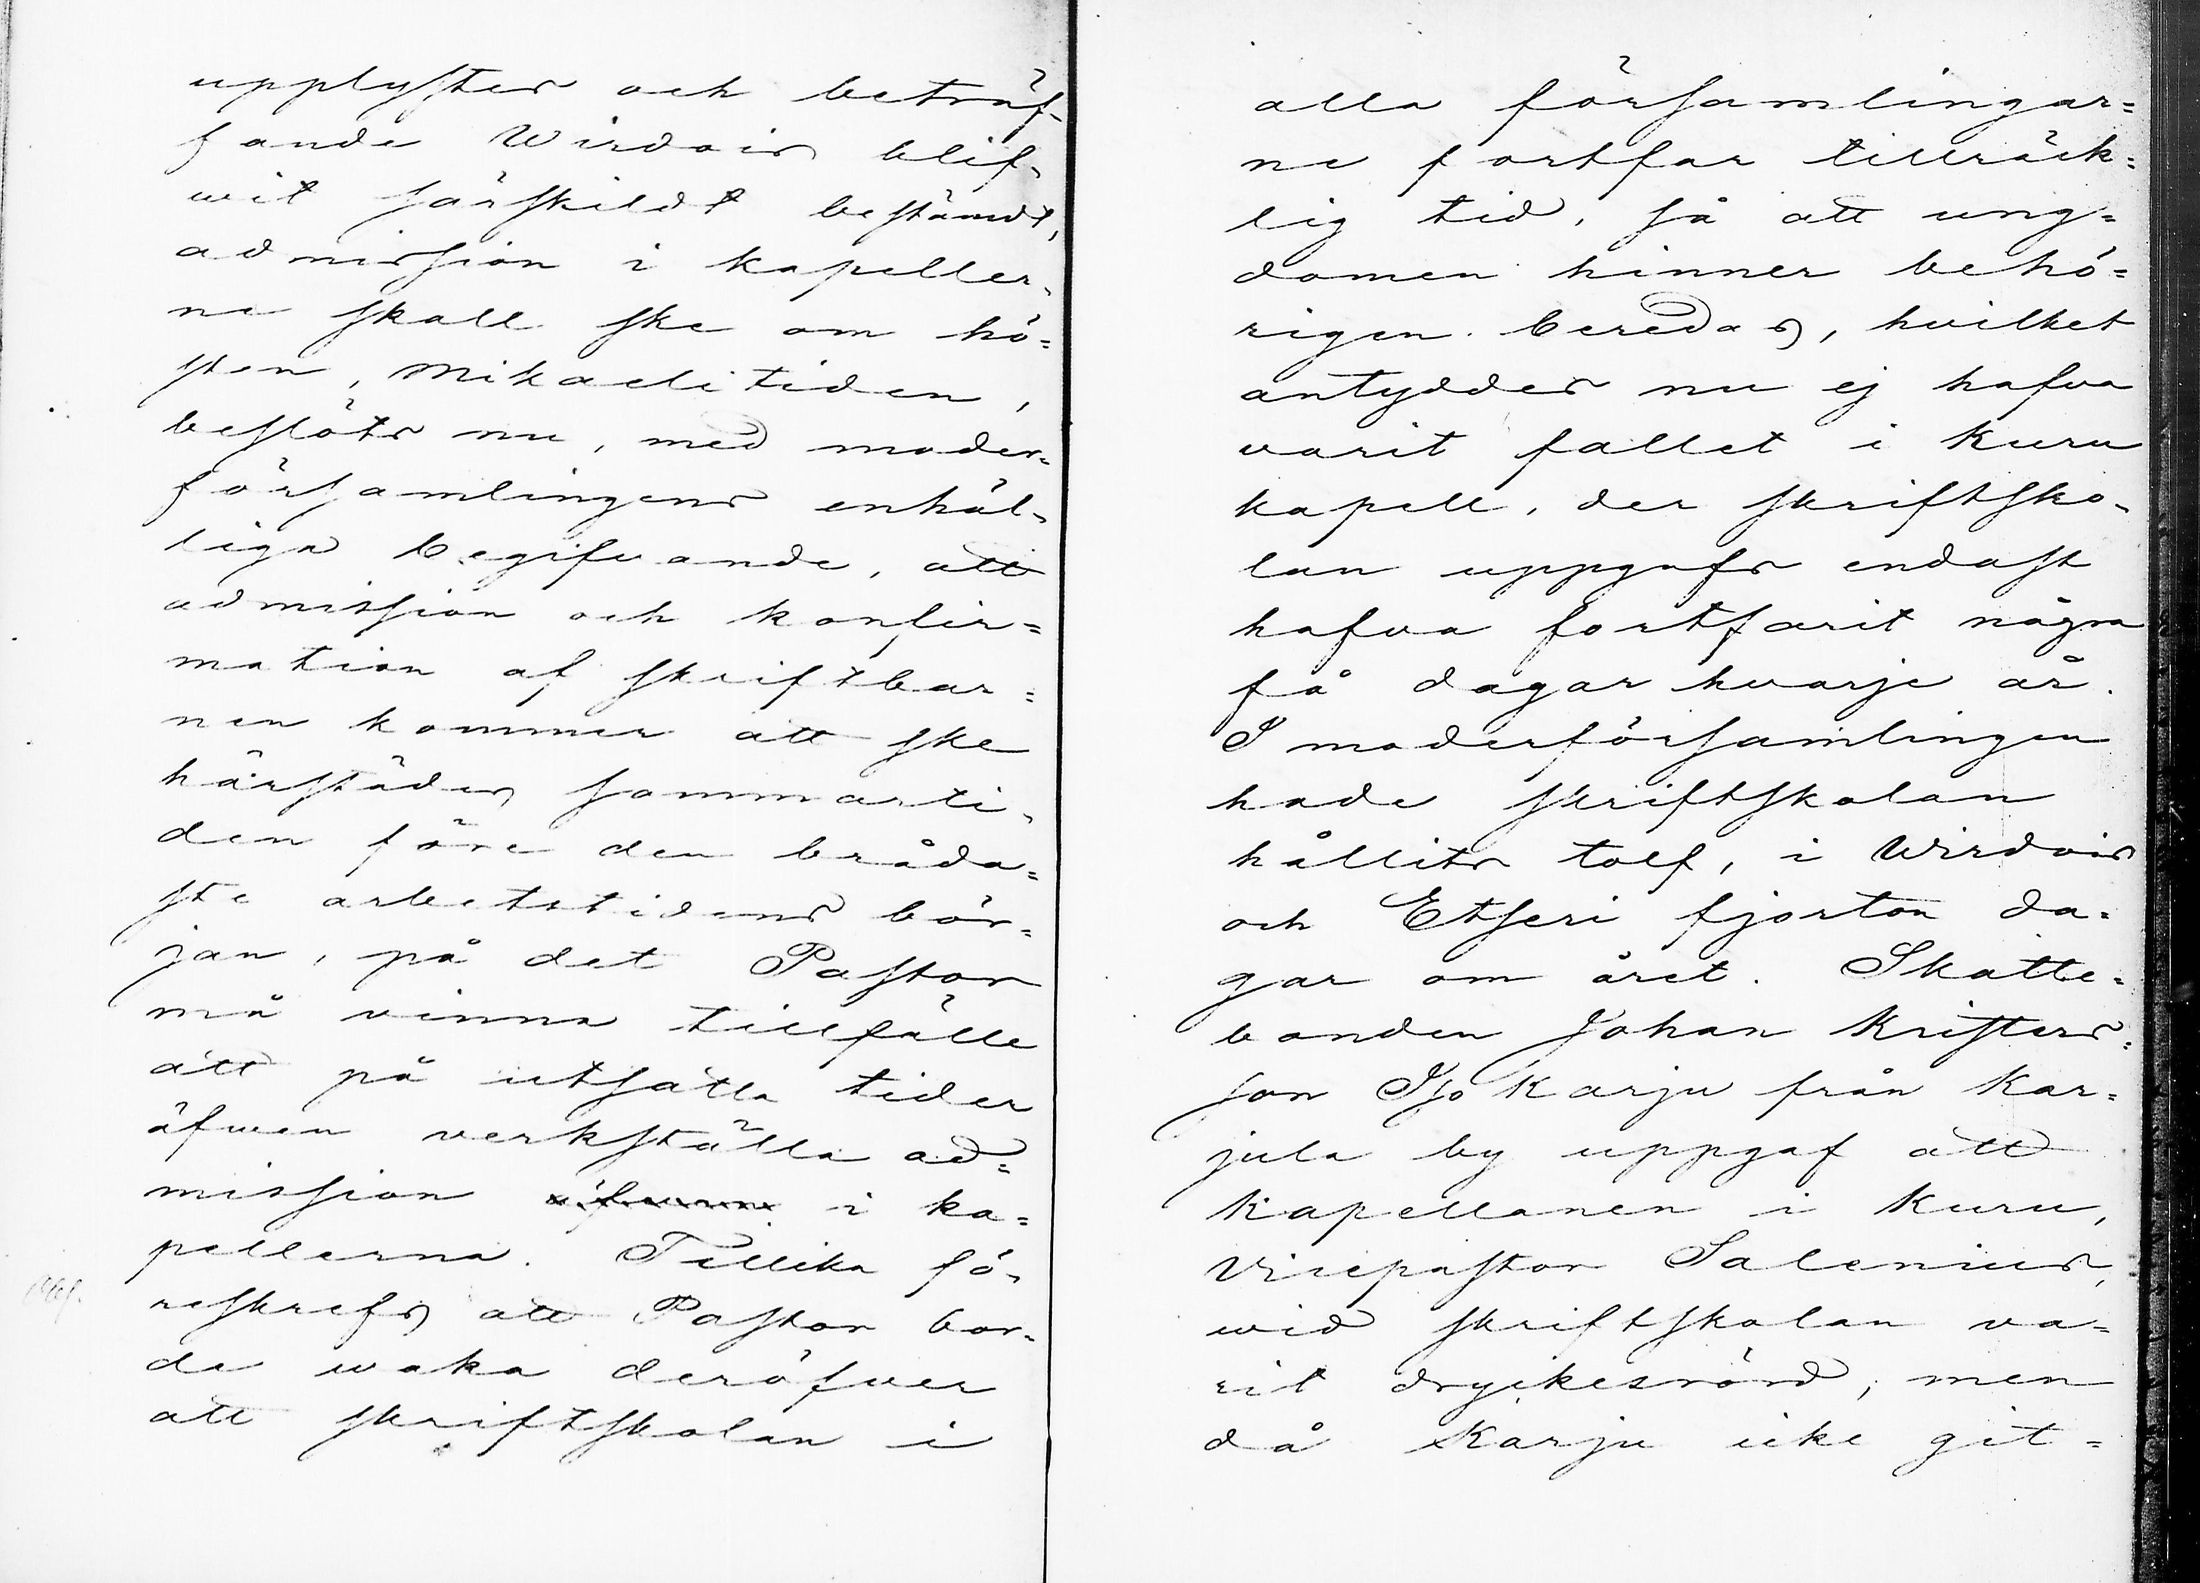 upplystes och beträf-
fande Wirdois blif-
wit särskildt bestämdt,
admission i kapeller-
ne skall ske om hö=
sten, Mikaelitiden,
beslöts nu, med moder-
församlingens enhäl-
liga begifvande, att
admission och konfir=
mation af skriftbar=
nen kommer att ske
härstädes sommarti-
den före den bråda=
ste arbetstidens bör=
jan, på det Pastor
må vinna tillfälle
att på utsatta tider
äfwen verkställa ad=
mission i ka=
pellerna. Tillika fö-
reskrefs att Pastor bor-
de waka deröfwer
att skriftskolan i
alla församlingar=
ne fortfar tillräck=
lig tid, så att ung=
domen hinner behö=
rigen beredas, hvilket
antyddes nu ej hafva
varit fallet i Kuru
kapell, der skriftsko-
lan uppgafs endast
hafva fortfarit några
få dagar hvarje år.
I moderförsamlingen
hade skriftskolan
hållits tolf, i Wirdois
och Etseri fjorton da=
gar om året. Skatte=
bonden Johan Kristers=
son Iso Karju från Kar=
jula by uppgaf att
Kapellanen i Kuru,
Vicepastor Salenius,
wid skriftskolan va=
rit dryckesrörd, men
då Karju icke git=